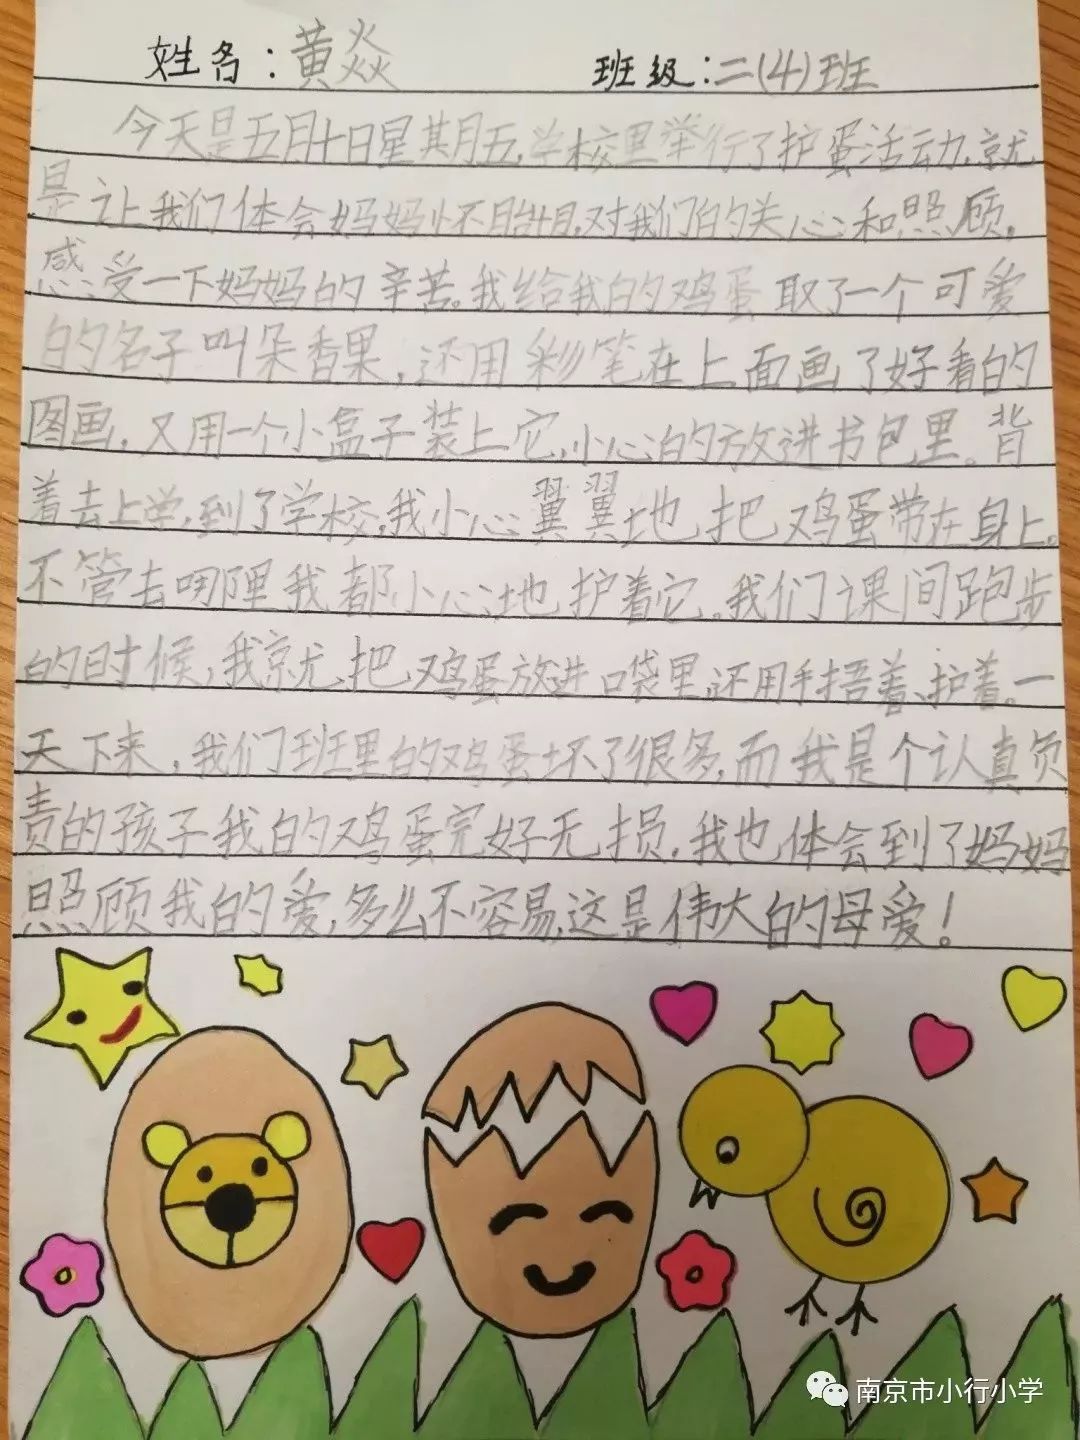 姓名：黄焱 班级：二(4)班
今天是五月十日星其月五，学校里举行了护蛋活动，就
是让我们体会妈妈怀胎时，对我们的关心和照顾，
感受一下妈妈的辛苦。我给我的鸡蛋取了一个可爱
的名子叫朵香果，还用彩笔在上面画了好看的
图画，又用一个小盒子装上它，小心的放进书包里。背
着去上学，到了学校，我小心翼翼地把鸡蛋带在身上。
不管去哪里我都小心地护着它。我们课间跑步
的时候，我就把鸡蛋放进口袋里，还用手捂着、护着。一
天下来，我们班里的鸡蛋坏了很多，而我是个认真负
责的孩子我的鸡蛋完好无损，我也体会到了妈妈
照顾我的爱，多么不容易，这是伟大的母爱！
南京市小行小学